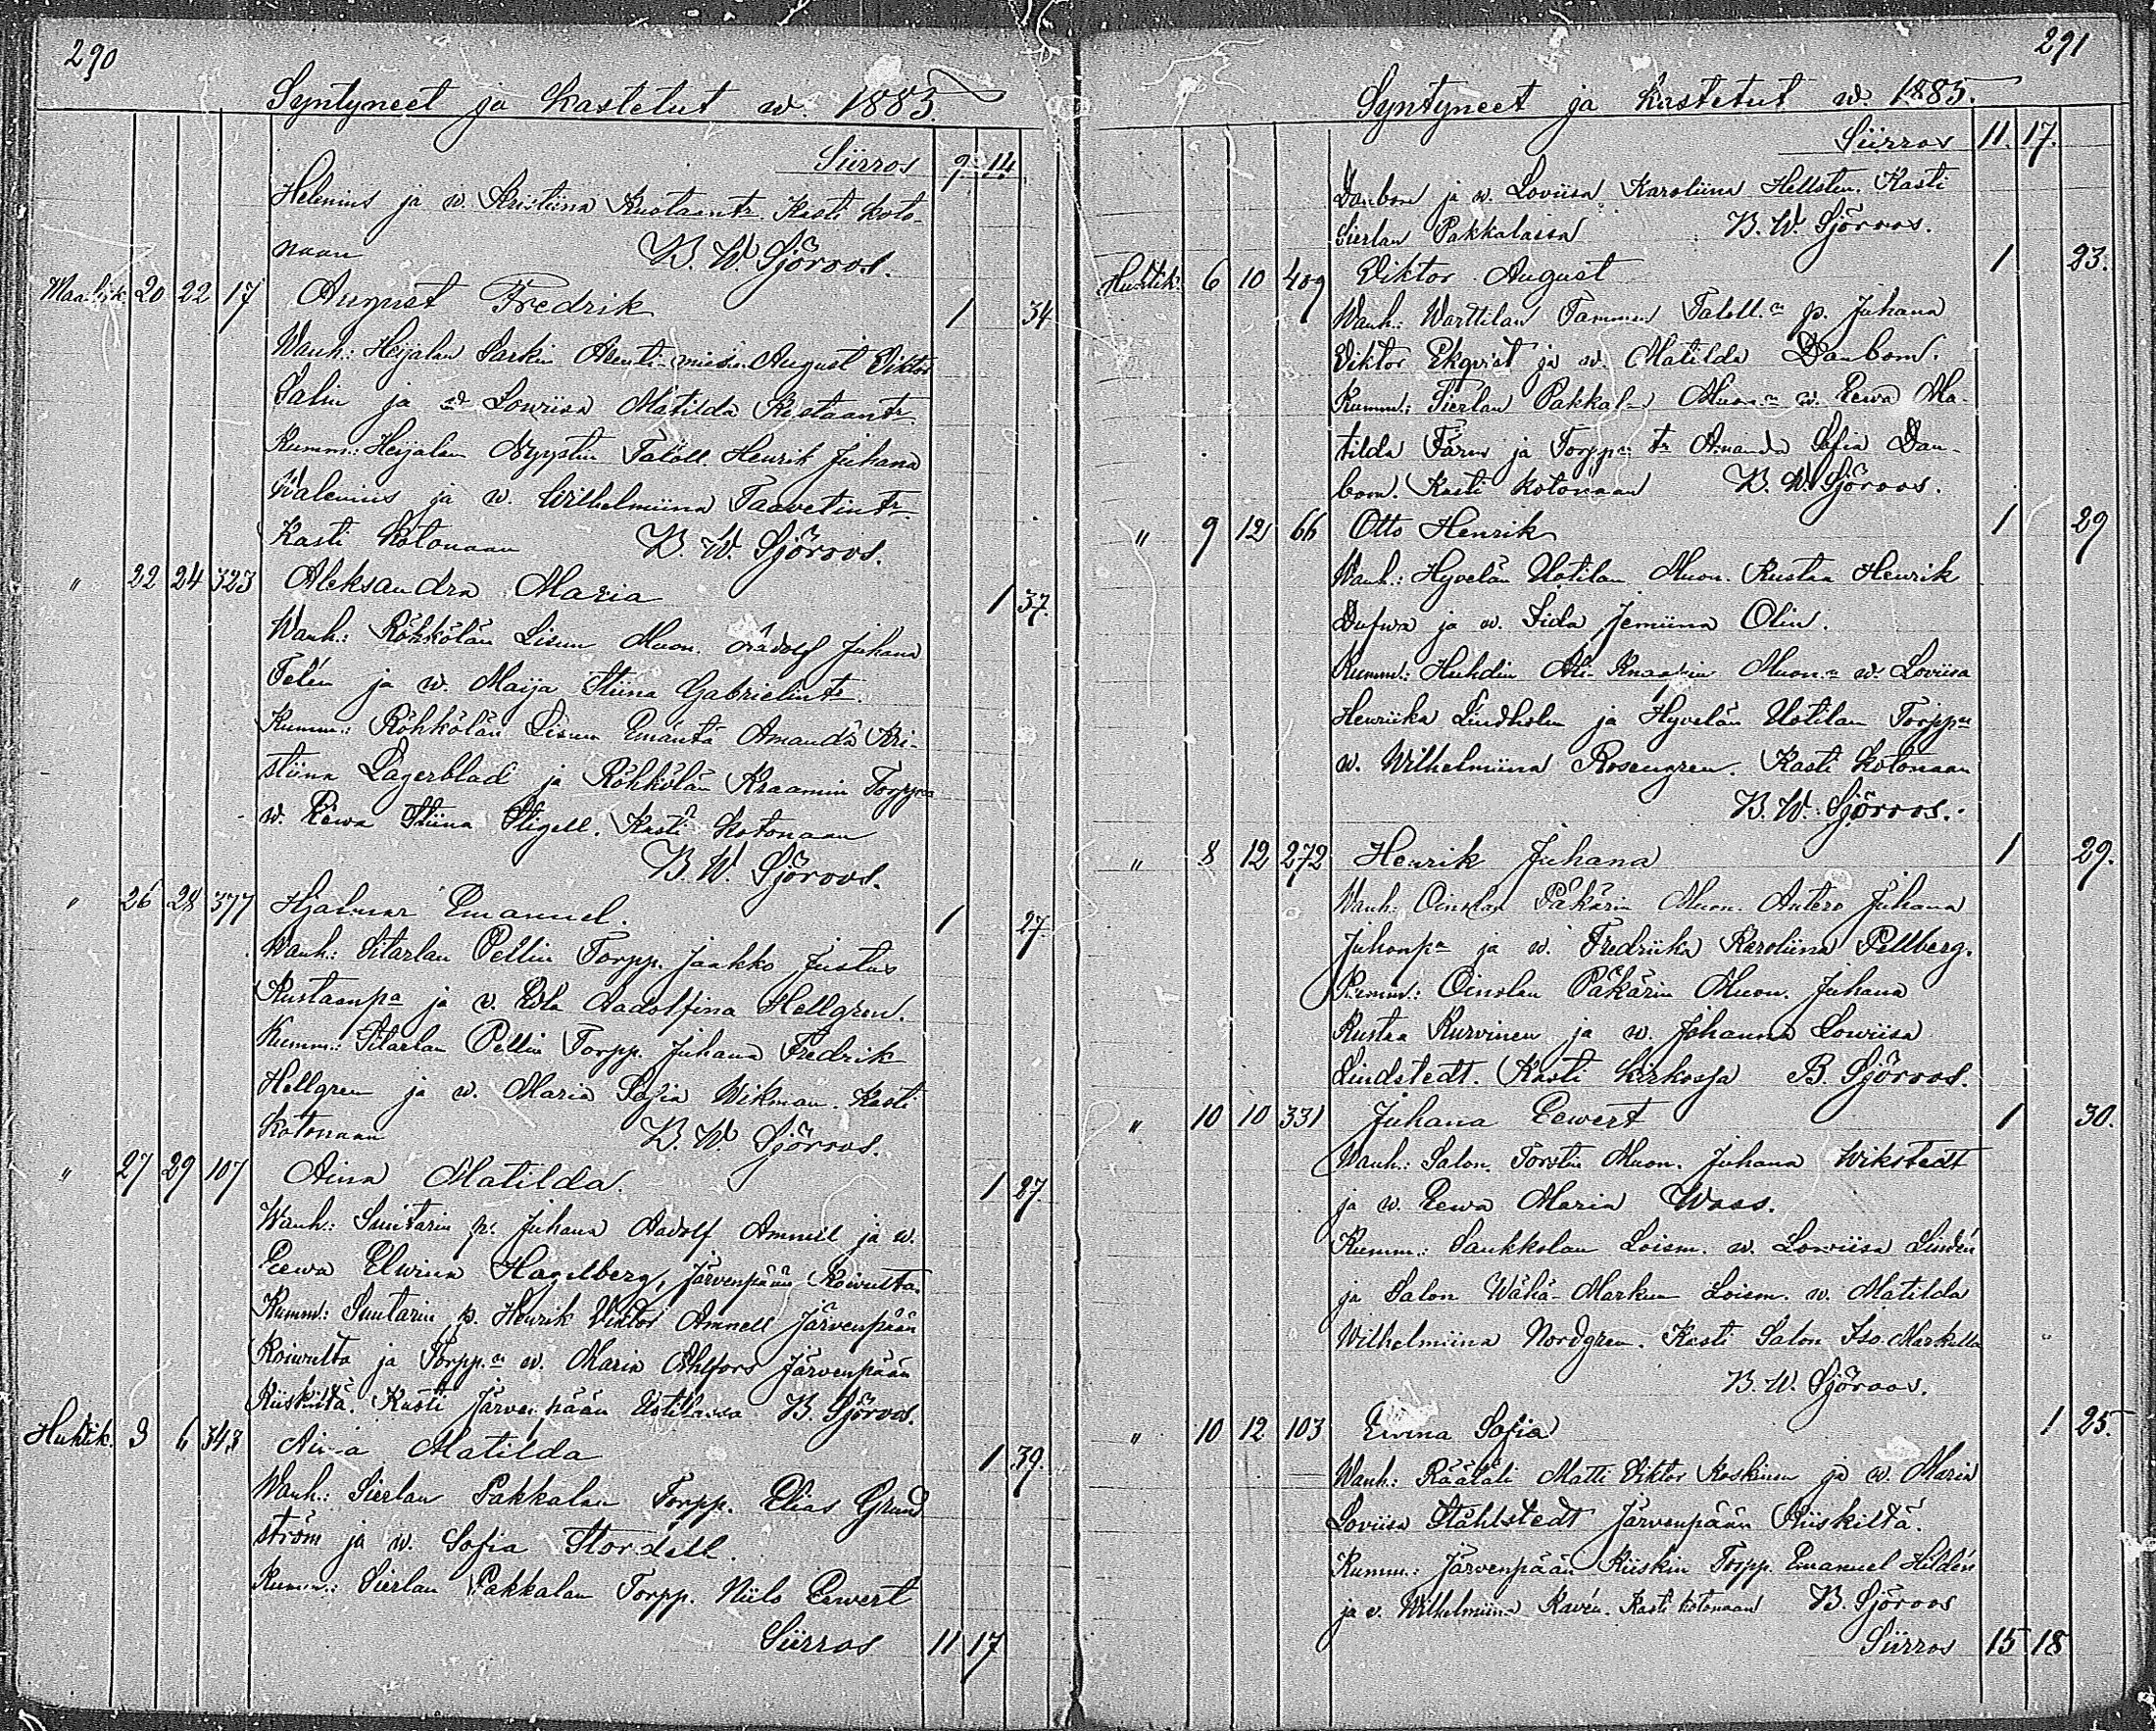 290
Syntyneet ja kastetut w. 1885.
Siirros 9 14
Helenius ja w. Kristiina Kustaantr. Kasti koto-
naan B. W. Sjöroos.
Maalisk. 20 22 17 August Fredrik 1 34
Wanh.: Heijalan Parkin August Viktor
Salin ja w. Lowiisa Matilda Kustaantr.
Kumm.: Heijalan Nyystin Taloll. Henrik Juhana
Walenius ja w. Wilhelmiina Taavetintr.
Kasti kotonaan B. W. Sjöroos.
" 22 24 323 Aleksandra Maria 1 37.
Wanh.: Röhkölän Lisun Muon. Aadolf Juhana
Telén ja w. Maija Stiina Gabrielintr.
Kumm.: Röhkölän Lisun Emäntä Amanda Kri-
stiina Lagerblad ja Röhkölän Kraamin Torpp.n
w. Eewa Stiina Stigell. Kasti kotonaan
B. W. Sjöroos.
" 26 28 377 Hjalmar Emanuel. 1 27.
Wanh.: Sitarlan Pellin Torpp. Jaakko Justus
Kustaanpa ja w. Edla Aadolfina Hellgren.
Kumm.: Sitarlan Pellin Torpp. Juhana Fredrik
Hellgren ja w. Maria Sofia Wikman. Kasti
kotonaan B. W. Sjöroos.
" 27 29 107 Aina Matilda. 1 27.
Wanh.: Suutarin p. Juhana Aadolf Amnell ja w.
Eewa Elwina Hagelberg, Järvenpään Roiwulta.
Kumm.: Suutarin p. Henrik Viktor Amnell Järvenpään
Roiwulta ja Torpp.n w. Maria Ahlfors Järvenpään
Kiiskiltä. Kasti Järvenpään Uotilassa B. Sjöroos.
Huhtik. 3 6 343 Aina Matilda 1 39.
Wanh.: Sierlan Pakkalan Torpp. Elias Grund
ström ja w. Sofia Stordell.
Kumm.: Sierlan Pakkalan Torpp. Niilo Eewert
Siirros 11 17
291
Syntyneet ja kastetut w. 1885.
Siirros 11. 17.
Danbom ja w. Loviisa Karoliina Hellsten. Kasti
Sierlan Pakkalassa B. W. Sjöroos.
Huhtik. 6 10 409 Viktor August 1 23.
Wanh.: Warttilan Tammen Taloll.n p. Juhana
Viktor Ekqvist ja w. Matilda Danbom.
Kumm.: Sierlan Pakkal.n Muon.n w. Eewa Ma-
tilda Färm ja Torpp.n tr Amanda Sofia Dan-
bom. Kasti kotonaan B. W. Sjöroos.
" 9 12 66 Otto Henrik 1 29
Wanh.: Hyvelän Uotilan Muon. Kustaa Henrik
Dufwa ja w. Iida Jemiina Olin.
Kumm.: Huhdin Ali-Knaapin Muon.n w. Loviisa
Henriika Lindholm ja Hyvelän Uotilan Torpp.n
w. Wilhelmiina Rosengren. Kasti kotonaan
B. W. Sjöroos.
" 8 12 272 Henrik Juhana 1 29.
Wanh: Oinolan Päkärin Muon. Antero Juhana
Juhonpa ja w. Fredriika Karoliina Pellberg.
Kumm.: Oinolan Päkärin Muon. Juhana
Kustaa Kurvinen ja w. Johanna Lowiisa
Lindstedt. Kasti kirkossa B. Sjöroos.
" 10 10 331 Juhana Eewert 1 30.
Wanh.: Salon Torstin Muon. Juhana Wikstedt
ja w. Eewa Maria Wass.
Kumm.: Saukkolan Loism. w. Lowiisa Lindén
ja Salon Wähä-Markun Loism. w. Matilda
Wilhelmiina Nordgren. Kasti Salon Iso-Markulla
B. W. Sjöroos.
" 10 12 103 Sofia 1 25.
Wanh: Räätäli Matti Viktor Koskinen ja w. Maria
Loviisa Ståhlstedt Järvenpään Kiiskiltä.
Kumm.: Järvenpään Kiiskin Torpp. Emanuel Hildén
ja w. Wilhelmiina Kavén. Kasti kotonaan B. Sjöroos
Siirros 15 18